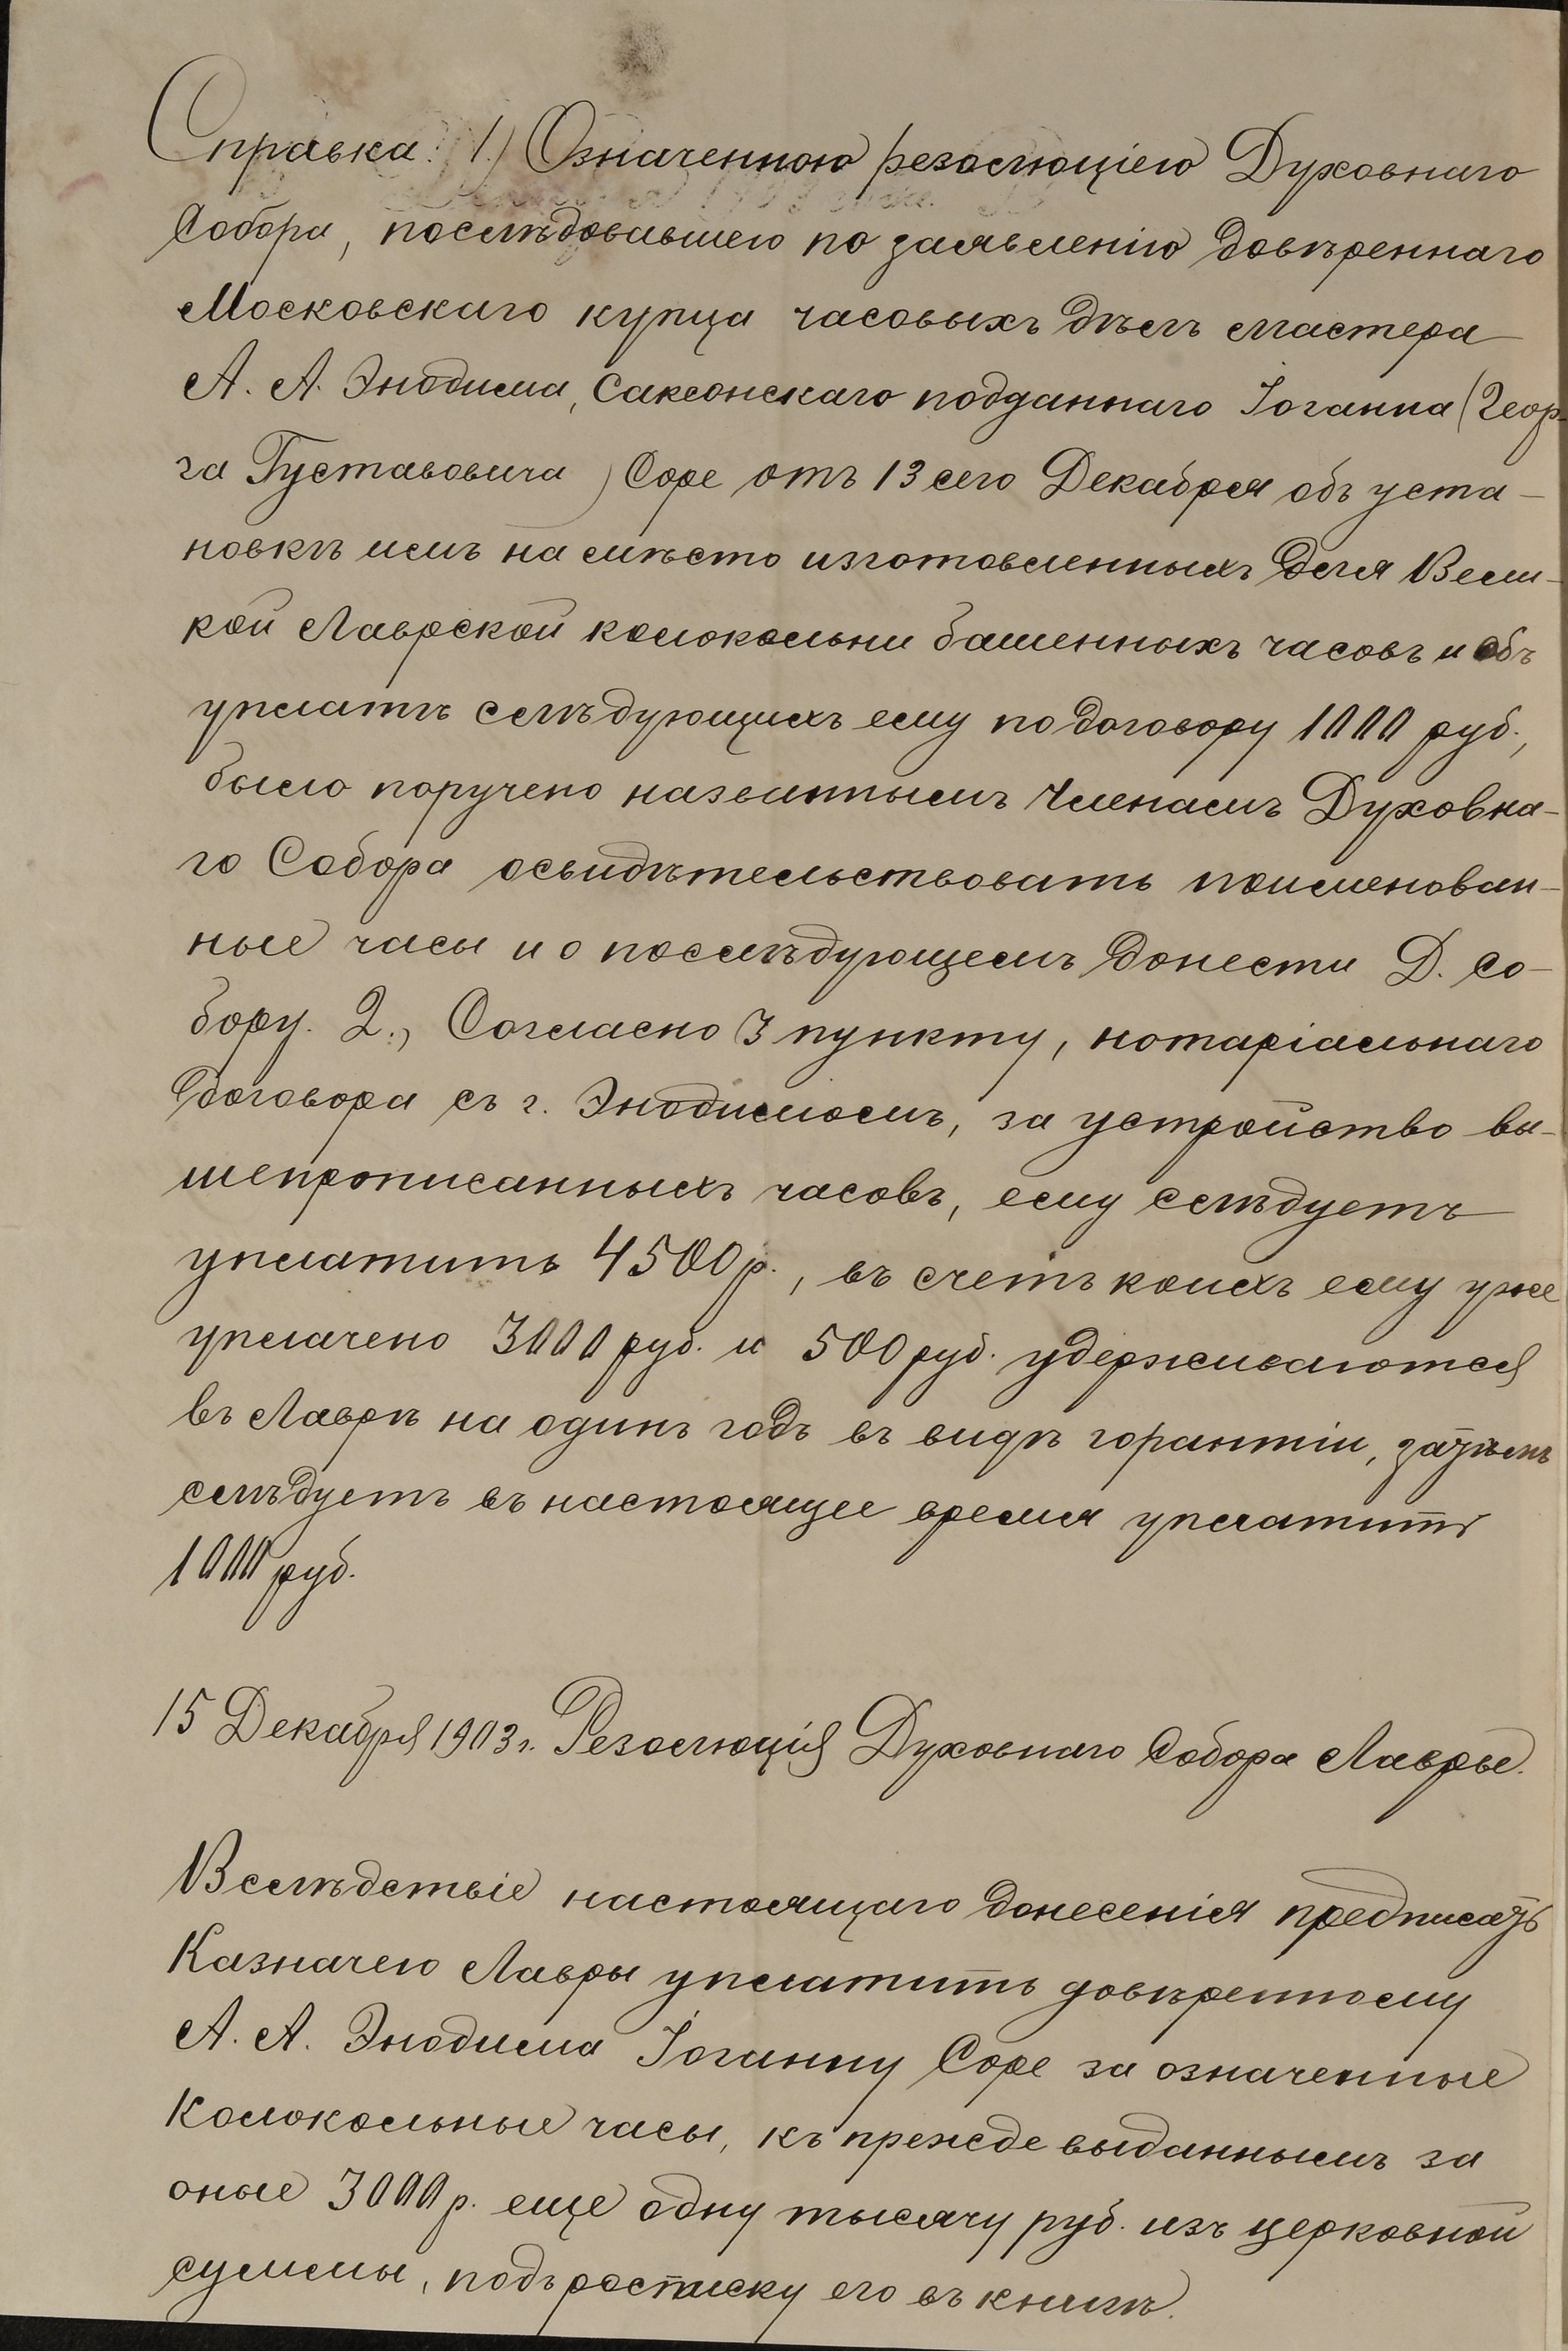 Справка. 1.) Означенною резолюціею Духовнаго
Собора, послѣдовавшею по заявленію довѣреннаго
Московскаго купца часовыхъ дѣлъ мастера
А. А. Энодина, Саксонскаго подданнаго Іоганна (Геор-
га Густавовича) Соре отъ 13 сего Декабря объ уста-
новкѣ имъ на мѣсто изготовленныхъ для Вели-
кой Лаврской колокольни башенныхъ часовъ и объ
уплатѣ слѣдующихъ ему по договору 1000 руб.,
было поручено названнымъ Членамъ Духовна-
го Собора освидѣтельствовать поименован-
ные часы и о послѣдующемъ донести Д. Со-
бору. 2., Согласно 3 пункту, нотаріальнаго
договора съ г. Энодимомъ, за устройство вы-
шепрописанныхъ часовъ, ему слѣдуетъ
уплатить 4500 р., въ счетъ коихъ ему уже
уплачено 3000 руб. и 500 руб. удерживаются
въ Лаврѣ на одинъ годъ въ видѣ горантіи, затѣмъ
слѣдуетъ въ настоящее время уплатить
1000 руб.
15 Декабря 1903 г. Резолюція Духовнаго Собора Лавры.
Вслѣдствіе настоящаго донесенія предписать
Казначею Лавры уплатить довѣренному
А. А. Энодима Іоганну Соре за означенные
колокольные часы, къ прежде выданнымъ за
оные 3000 р. еще одну тысячу руб. изъ церковной
суммы, подъ росписку его въ книгѣ.